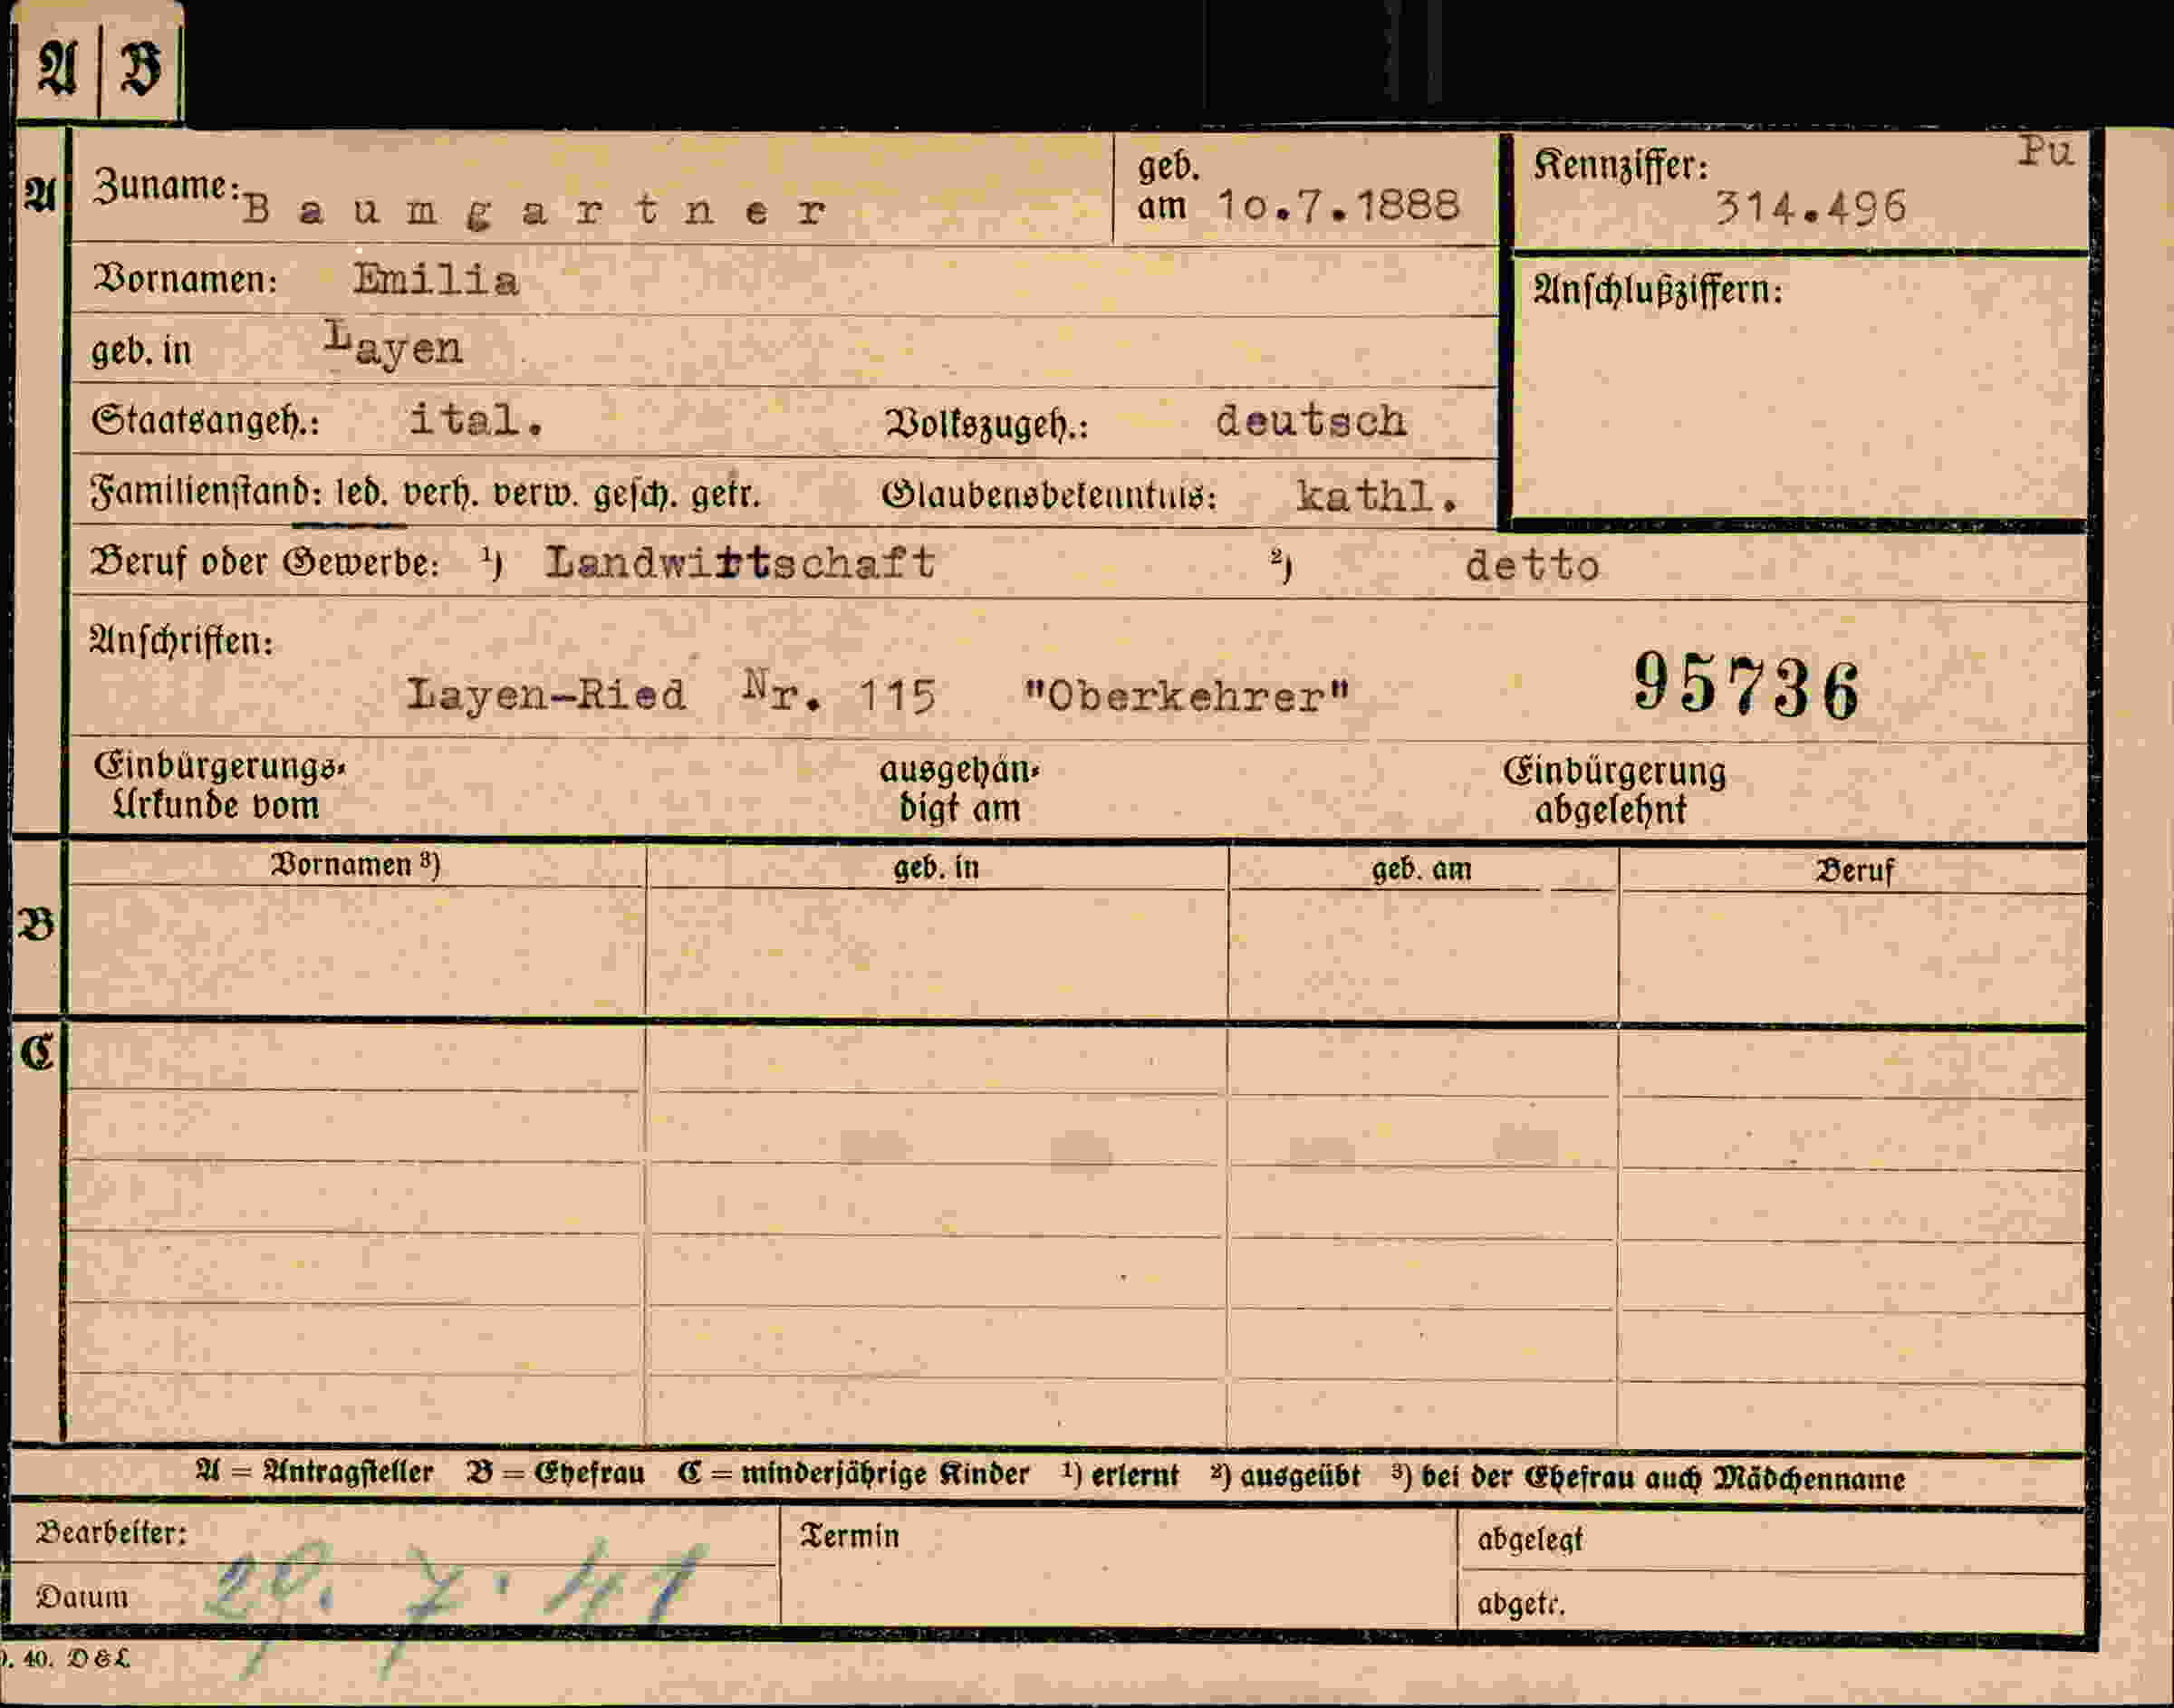 A B
Pu
A Zuname: Baumgartner geb. am 10.7.1888 Kennziffer: 314.496
Vornamen: Emilia Anschlußziffern:
geb. in Layen
Staatsangeh.: ital. Volkszugeh.: deutsch
Familienstand: led. verh. verw. gesch. getr. Glaubensbekenntnis: kathl.
Beruf oder Gewerbe: ¹) Landwirtschaft ²) detto
Anschriften:
Layen-Ried Nr. 115 "Oberkehrer" 95736
Einbürgerungs- ausgehän- Einbürgerung
Urkunde vom digt am abgelehnt
Vornamen ³) geb. in geb. am Beruf
B
C
A = Antragsteller B = Ehefrau C = minderjährige Kinder ¹) erlernt ²) ausgeübt ³) bei der Ehefrau auch Mädchenname
Bearbeiter: Termin abgelegt
Datum 29. 7. 41 abgetr.
40. D & L